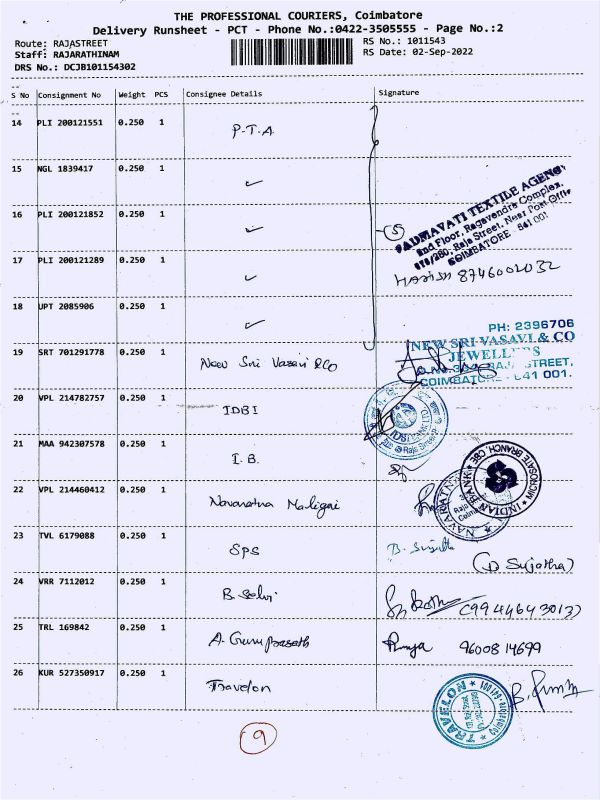 THE PROFESSIONAL COURIERS, Coimbatore
Delivery Runsheet - PCT - Phone No.:0422-3505555 - Page No.:2
Route: RAJASTREET
RS No.: 1011543
Staff: RAJARATHINAM
RS Date: 02-Sep-2022
DRS No.: DCJB101154302
S No Consignment No Weight PCS Consignee Details Signature
14 PLI 200121551 0.250 1 P.T.A
15 NGL 1839417 0.250 1 ✓
16 PLI 200121852 0.250 1 ✓
5
PADMAVATI TEXTILE AGENCY
2nd Floor, Ragavendra Complex,
Raja Street, Near Post Office
COIMBATORE. 641 001
17 PLI 200121289 0.250 1 ✓
Harish 8746002032
18 UPT 2085906 0.250 1 ✓
PH: 2396706
NEW SRI VASAVI & CO
JEWELLERS
STREET,
COIMBATORE - 641 001.
19 SRT 701291778 0.250 1 New Sri Vasavi & Co
20 VPL 214782757 0.250 1 IDBI
IDBI BANK LTD.
Raja Street
21 MAA 942307578 0.250 1 I.B.
INDIAN BANK
MICROSATE BRANCH, CBE
22 VPL 214460412 0.250 1 Navaratna Maligai
NAVARATNA
23 TVL 6179088 0.250 1 SPS
D. Sujatha
(D Sujatha)
24 VRR 7112012 0.250 1 B. Selvi
(9944643013)
25 TRL 169842 0.250 1 A. Guruprasath
Ramya 9600814699
26 KUR 527350917 0.250 1 Travelon
TRAVELON
9